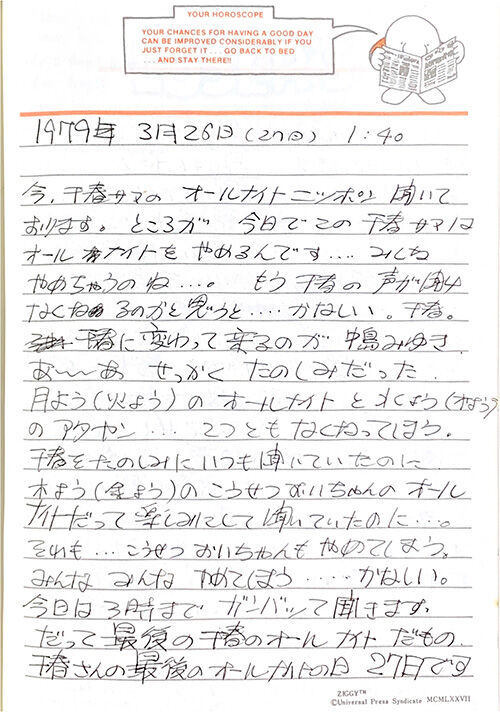 YOUR HOROSCOPE
YOUR CHANCES FOR HAVING A GOOD DAY
CAN BE IMPROVED CONSIDERABLY IF YOU
JUST FORGET IT . . . GO BACK TO BED
. . . AND STAY THERE!!
1979年 3月26日(27日) 1:40
今、千春サマの オールナイトニッポン 聞いて
おります。ところが 今日でこの 千春サマは
オールナイトを やめるんです・・・・ みんな
やめちゃうのね・・・。 もう 千春の 声が聞け
なくなるのかと思うと・・・・かなしい。千春。
千春に 変わって 来るのが 中島みゆき.
あ〜〜あ せっかく たのしみだった.
月よう(火よう)の オールナイト と 水よう(木よう)
の アタヤン・・・・ 2つとも なくなってしまう。
千春をたのしみにいつも聞いていたのに
木よう(金よう)の こうせつ おいちゃんの オール
ナイトだって 楽しみにして 聞いていたのに・・・。
それも・・・こうせつ おいちゃんも やめてしまう。
みんな みんな やめてしまう・・・・・かなしい。
今日は 3時まで ガンバッて 聞きます.
だって 最後の 千春のオールナイトだもの.
千春さんの最後のオールナイトの日 27日です
ZIGGY™
©Universal Press Syndicate MCMLXXVII